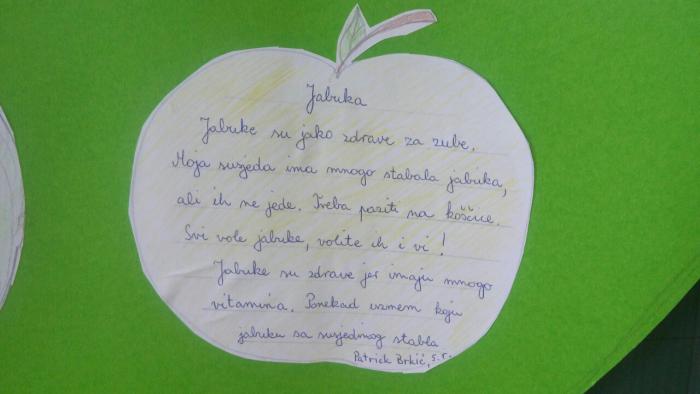 Jabuka
Jabuke su jako zdrave za zube.
Moja susjeda ima mnogo stabala jabuka,
ali ih ne jede. Treba paziti na koščice.
Svi vole jabuke, volite ih i vi!
Jabuke su zdrave jer imaju mnogo
vitamina. Ponekad uzmem koju
jabuku sa susjedinog stabla
Patrick Brkić, 5.r.